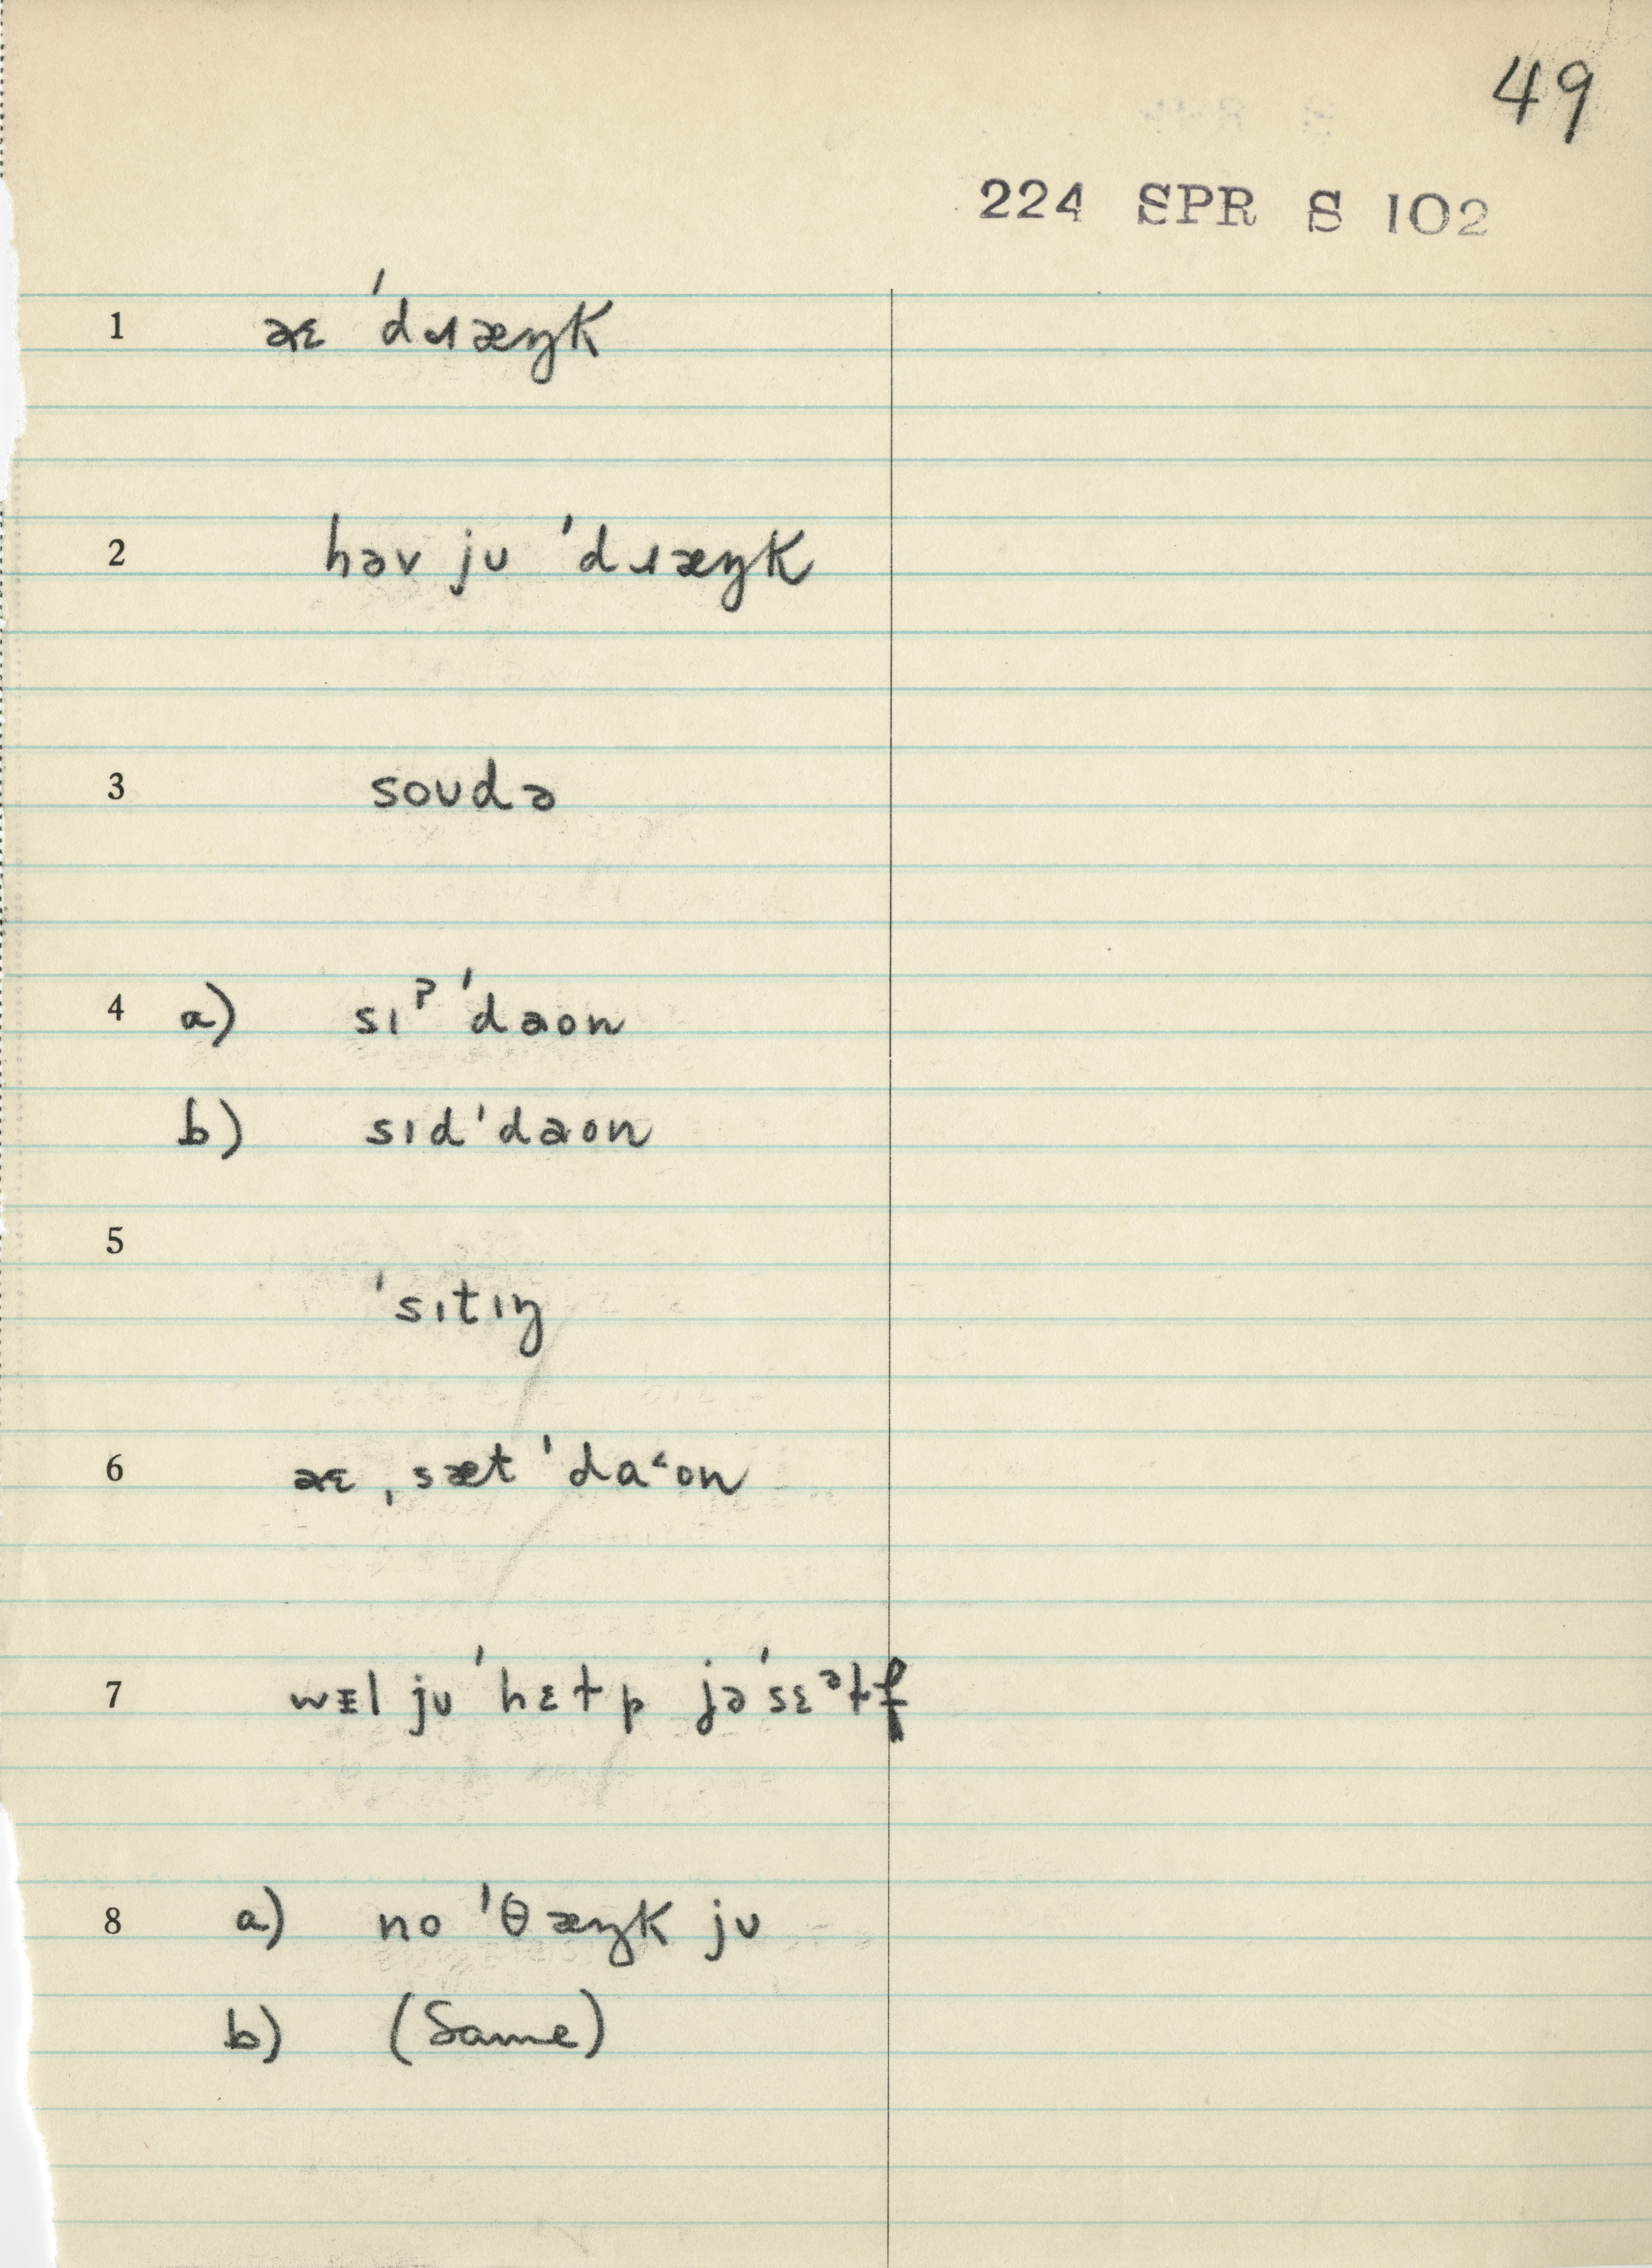 49
224 SPR S 102
1 aɛ ˈdɹæŋk
2 həv jʊ ˈdɹæŋk
3 soʊdə
4 a) sɪˀ ˈdaon
b) sɪdˈdaon
5
ˈsɪtɪŋ
6 aɛ ˌsæt ˈda˂on
7 wᵻl jʊ ˈhɛɫp jəˈsɛᵊɫf
8 a) no ˈθæŋk jʊ
b) (Same)